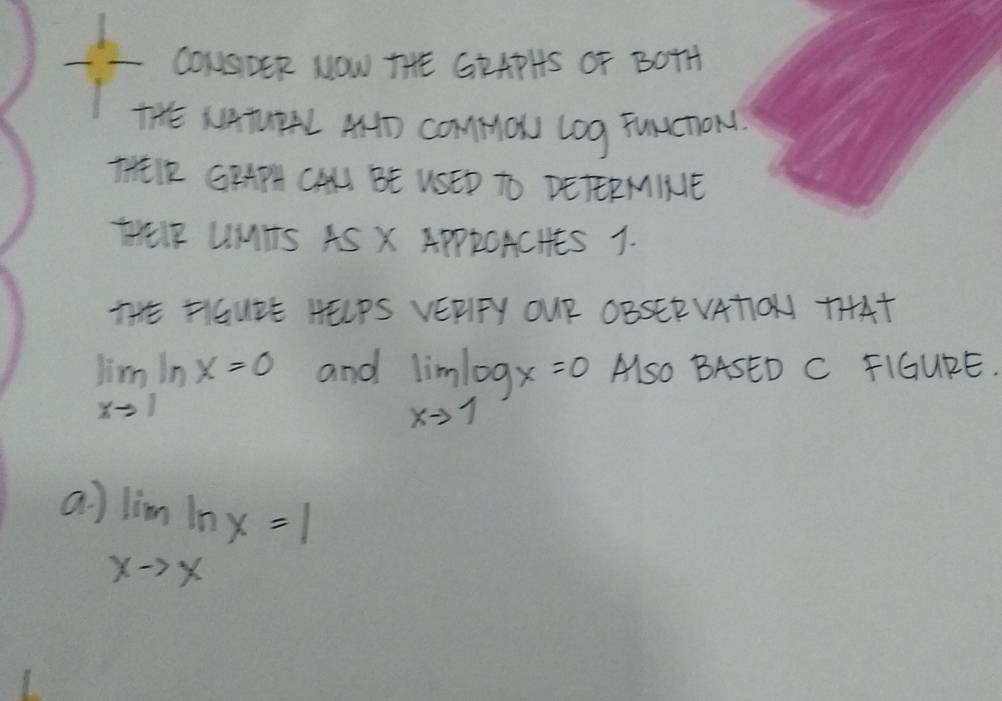 CONSIDER NOW THE GRAPHS OF BOTH
THE NATURAL AND COMMON LOG FUNCTION.
THEIR GRAPH CAN BE USED TO DETERMINE
THEIR LIMITS AS X APPROACHES 1.
THE FIGURE HELPS VERIFY OUR OBSERVATION THAT
lim ln x = 0 and lim log x = 0 Also BASED C FIGURE.
x→1 x→1
a.) lim ln x = 1
x→x